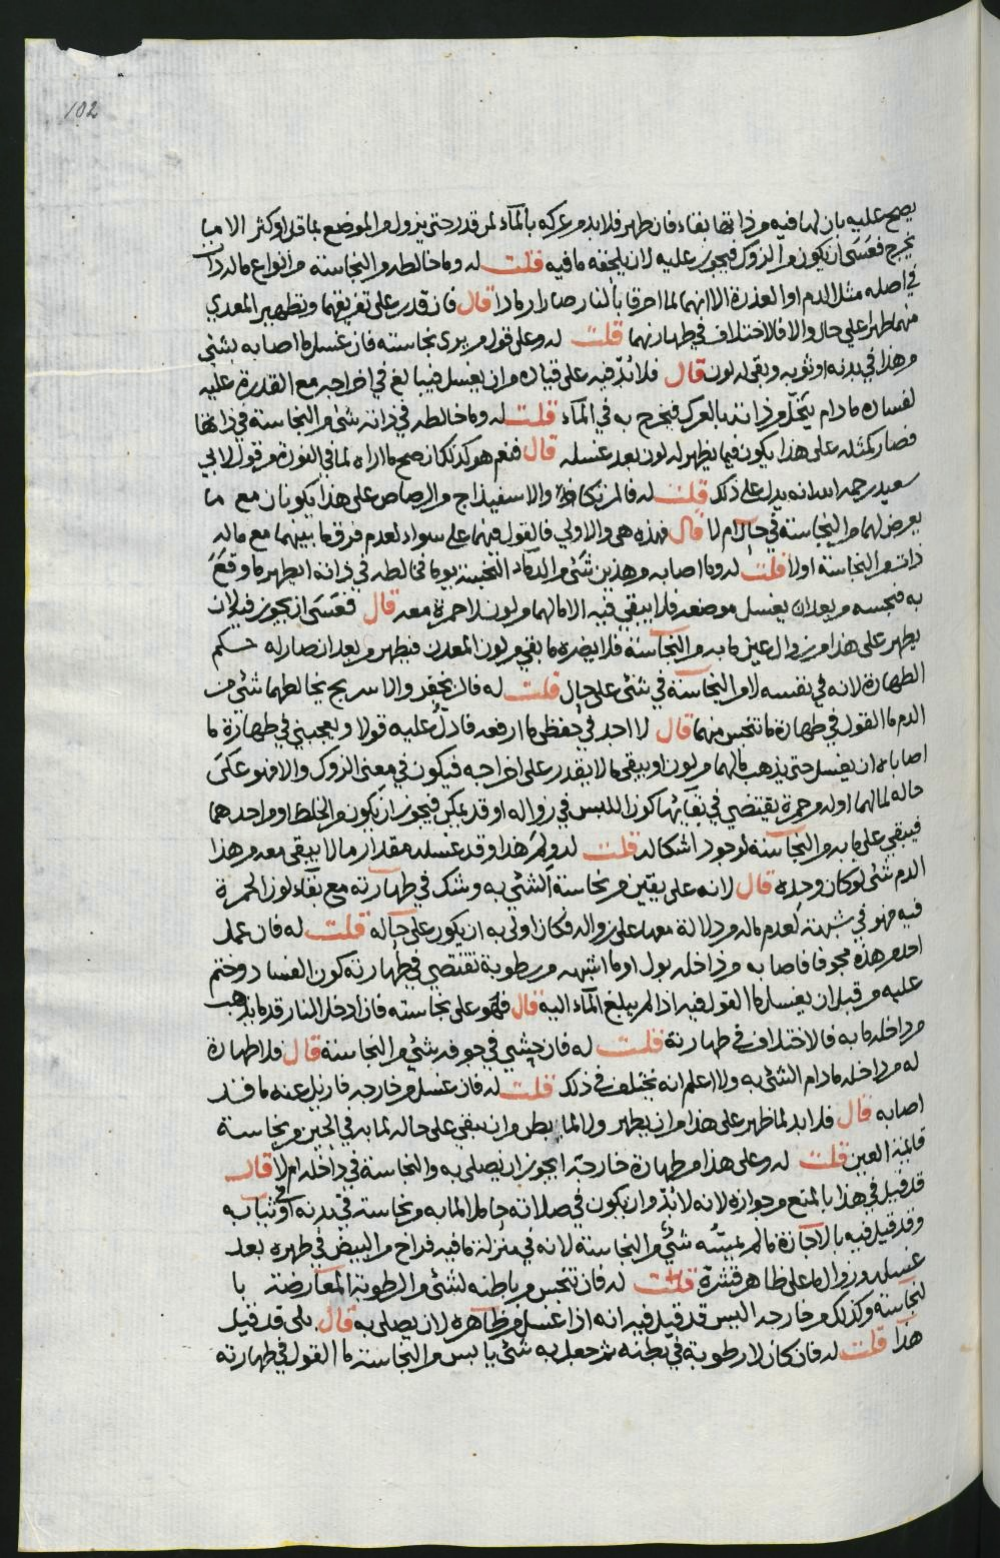 102
يصح عليه بان لها فيه من ذاتها بقاء فان طهر فلا بد من عركه بالمآء لمن قدر حتى يزول من الموضع بما قل او كثر الا ما
يخرج فعسى ان يكون من الزوك فيجوز عليه لان يلحقه ما فيه قلت له وما خالطه من النجاسة من انواع ما له ذات
في اصله مثل الدم او العذرة الا انهما لما احرقا بالنار صارا رمادا قال فان قدر على تفريقهما وتطهير المعدي
منهما طهرا على حال والا فالاختلاف في طهارتهما قلت له وعلى قول من يرى نجاسته فان غسل ما اصابه بشئ
من هذا في بدنه او ثوبه وبقي له لون قال فلا بد فيه على قياده من ان يغسل فيبالغ في اخراجه مع القدرة عليه
لفساده ما دام يتحلل من ذاته بالعرك فيخرج به في المآء قلت له وما خالطه في ذاته شئ من النجاسة في ذاتها
فصار كمثله على هذا يكون فيما يظهر له لون بعد غسله قال فنعم هو كذلك ان صح ما اراه لما في النورة من قول لابي
سعيد رحمه الله انه يدل على ذلك قلت له فالمرتك او الاسفيذاج والرصاص على هذا يكونان مع ما
يعرض لهما من النجاسة في حال ام لا قال فهذه هي والاولى فالقول فيهما على سواء لعدم فرق ما بينهما مع ما له
ذات من النجاسة اولا قلت له وما اصابه من هذين شئ من الدماء النجسة بوما خالطه في ذاته ايطهر ما وقع
به فنجسه من بعد ان يغسل موضعه فلا يبقي فيه الا ما لهما من لون لا حمرة معه قال فعسى ان يجوز فيه لان
يطهر على هذا من زوال عين ما به من النجاسة فلا يضره ما بقي من لون المعدن فيطهر من بعد ان صار له حكم
الطهارة لانه في نفسه لا من النجاسة في شئ على حال قلت له فان يحفر والا سريج يخالطهما شئ من
الدم ما القول في طهارة ما تنجس منهما قال لا احد في حفظي ما ارفعه فادل عليه قولا ويعجبني في طهارة ما
اصاباه ان يغسل حتى يذهب مالهما من لون او يبقى ما لا يقدر على اخراجه فيكون في معنى الزوك والا فهو على
حاله لما لهما اوله من حمرة يقتضي في بقائها كون اللبس في زواله او قد يمكن فيجوز ان يكون من الخلط او من احدهما
فيبقي على ما به من النجاسة لوجود اشكاله قلت له ولم هذا وقد غسله مقدار ما لا يبقى معه من هذا
الدم شئ لو كان وحده قال لانه على يقين من نجاسة الشئ به وشك في طهارته مع بقاء لون الحمرة
فيه فهو في شبهة لعدم ماله من دلالة معها على زواله فكان اولى به ان يكون على حاله قلت له فان عمل
احد من هذه مجوفا فاصابه من داخله بول او ما اشبهه من رطوبة تقتضي في طهارته كون الفساد وختم
عليه من قبل ان يغسل ما القول فيه اذا لم يبلغ المآء اليه قال فهو على نجاسته فان ادخل النار قد ما يذهب
من داخله ما به فالاختلاف في طهارتة قلت له فان حشي في جوفه شئ من النجاسة قال فلا طهارة
له من داخله ما دام الشئ به ولا اعلم انه يختلف في ذلك قلت له فان غسل من خارجه فازيل عنه ما قد
اصابه قال فلا بد لما ظهر على هذا من ان يطهر ولا لما بطن من ان يبقي على حاله لما به في الحين من نجاسة
قائمة العين قلت له وعلى هذا من طهارة خارجه ايجوز ان يصلى به والنجاسة في داخله ام لا قال
قد قيل في هذا بالمنع من جوازه لانه لا بد وان يكون في صلاته حاملا لما به من نجاسته في بدنه او في ثيابه
وقد قيل فيه بالاجازة ما لم يمسه شئ من النجاسة لانه في منزلة ما فيه فراخ من البيض في طهره بعد
غسله وزوال ما على ظاهر قشرة قلت له فان تنجس من باطنه لشئ من الرطوبة المعارضة با
لنجاسة وكذلك من خارجه اليس قد قيل فيه انه اذا غسل من ظاهره لان يصلى به قال بلى قد قيل
هذا قلت له فان كان لا رطوبة في بطنه ثم جعل به شئ يابس من النجاسة ما القول في طهارته